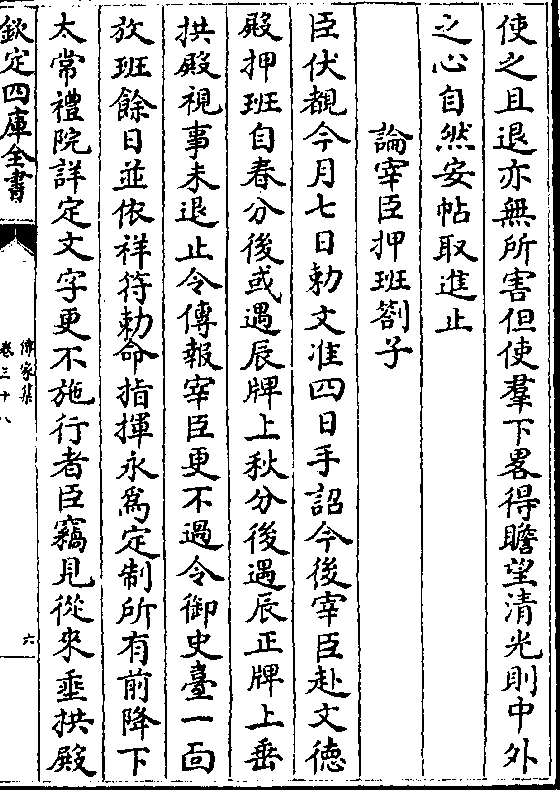 使之且退亦無所害但使羣下畧得瞻望清光則中外
之心自然安帖取進止
論宰臣押班劄子
臣伏覩今月七日勅文准四日手詔今後宰臣赴文德
殿押班自春分後或遇辰牌上秋分後遇辰正牌上垂
拱殿視事未退止令傳報宰臣更不過令御史臺一面
放班餘日並依祥符勅命指揮永爲定制所有前降下
太常禮院詳定文字更不施行者臣竊見從來垂拱殿
欽定四庫全書
傳家集
卷三十八
六